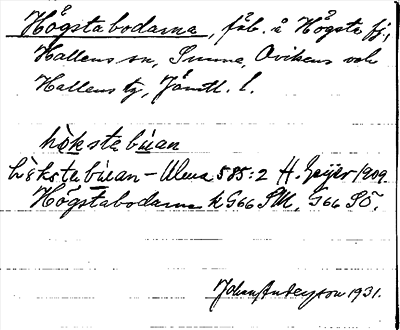 Högstabodarna, fäb. å Högsta fj,
Hallens sn, Sunne, Ovikens och
Hallens tg, Jämtl. l.
hökstabúan
hökstabúan - Ulma 585:2 H. Geijer 1909
Högstabodarna k G66 SM, G66 SÖ.
Johan Anderson 1931.